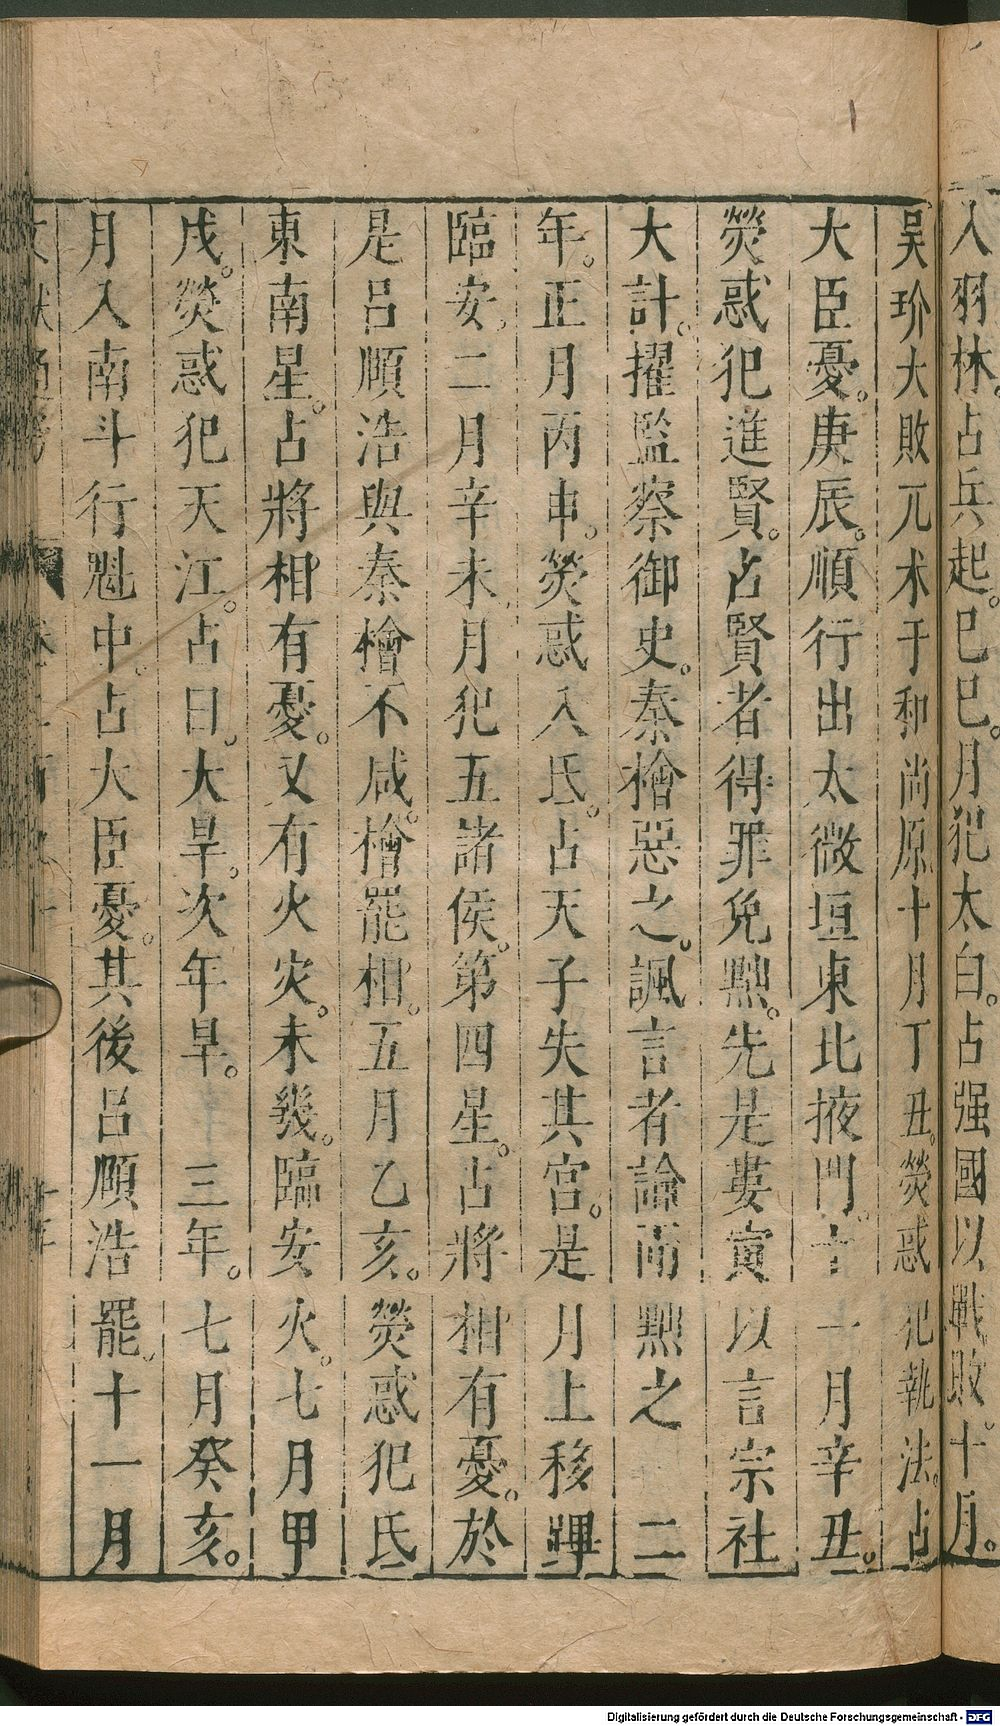 入羽林占兵起。己巳。月犯太白。占强國以戰敗。十月。
吳玠大敗兀术于和尚原十月丁丑。熒惑犯執法。占
大臣憂。庚辰。順行出太微垣東北掖門。十一月辛丑。
熒惑犯進賢。占賢者得罪免黜。先是婁寅以言宗社
大計。擢監察御史。秦檜惡之。諷言者論而黜之　二
年。正月丙申。熒惑入氐。占天子失其宮。是月上移蹕
臨安。二月辛未。月犯五諸侯。第四星。占將相有憂。於
是呂順浩與秦檜不咸。檜罷相。五月乙亥。熒惑犯氐
東南星。占將相有憂。又有火灾。未幾。臨安火。七月甲
戌。熒惑犯天江。占曰。大旱。次年旱。　三年。七月癸亥。
月入南斗行魁中。占大臣憂。其後呂順浩罷。十一月
Digitalisierung gefördert durch die Deutsche Forschungsgemeinschaft - DFG